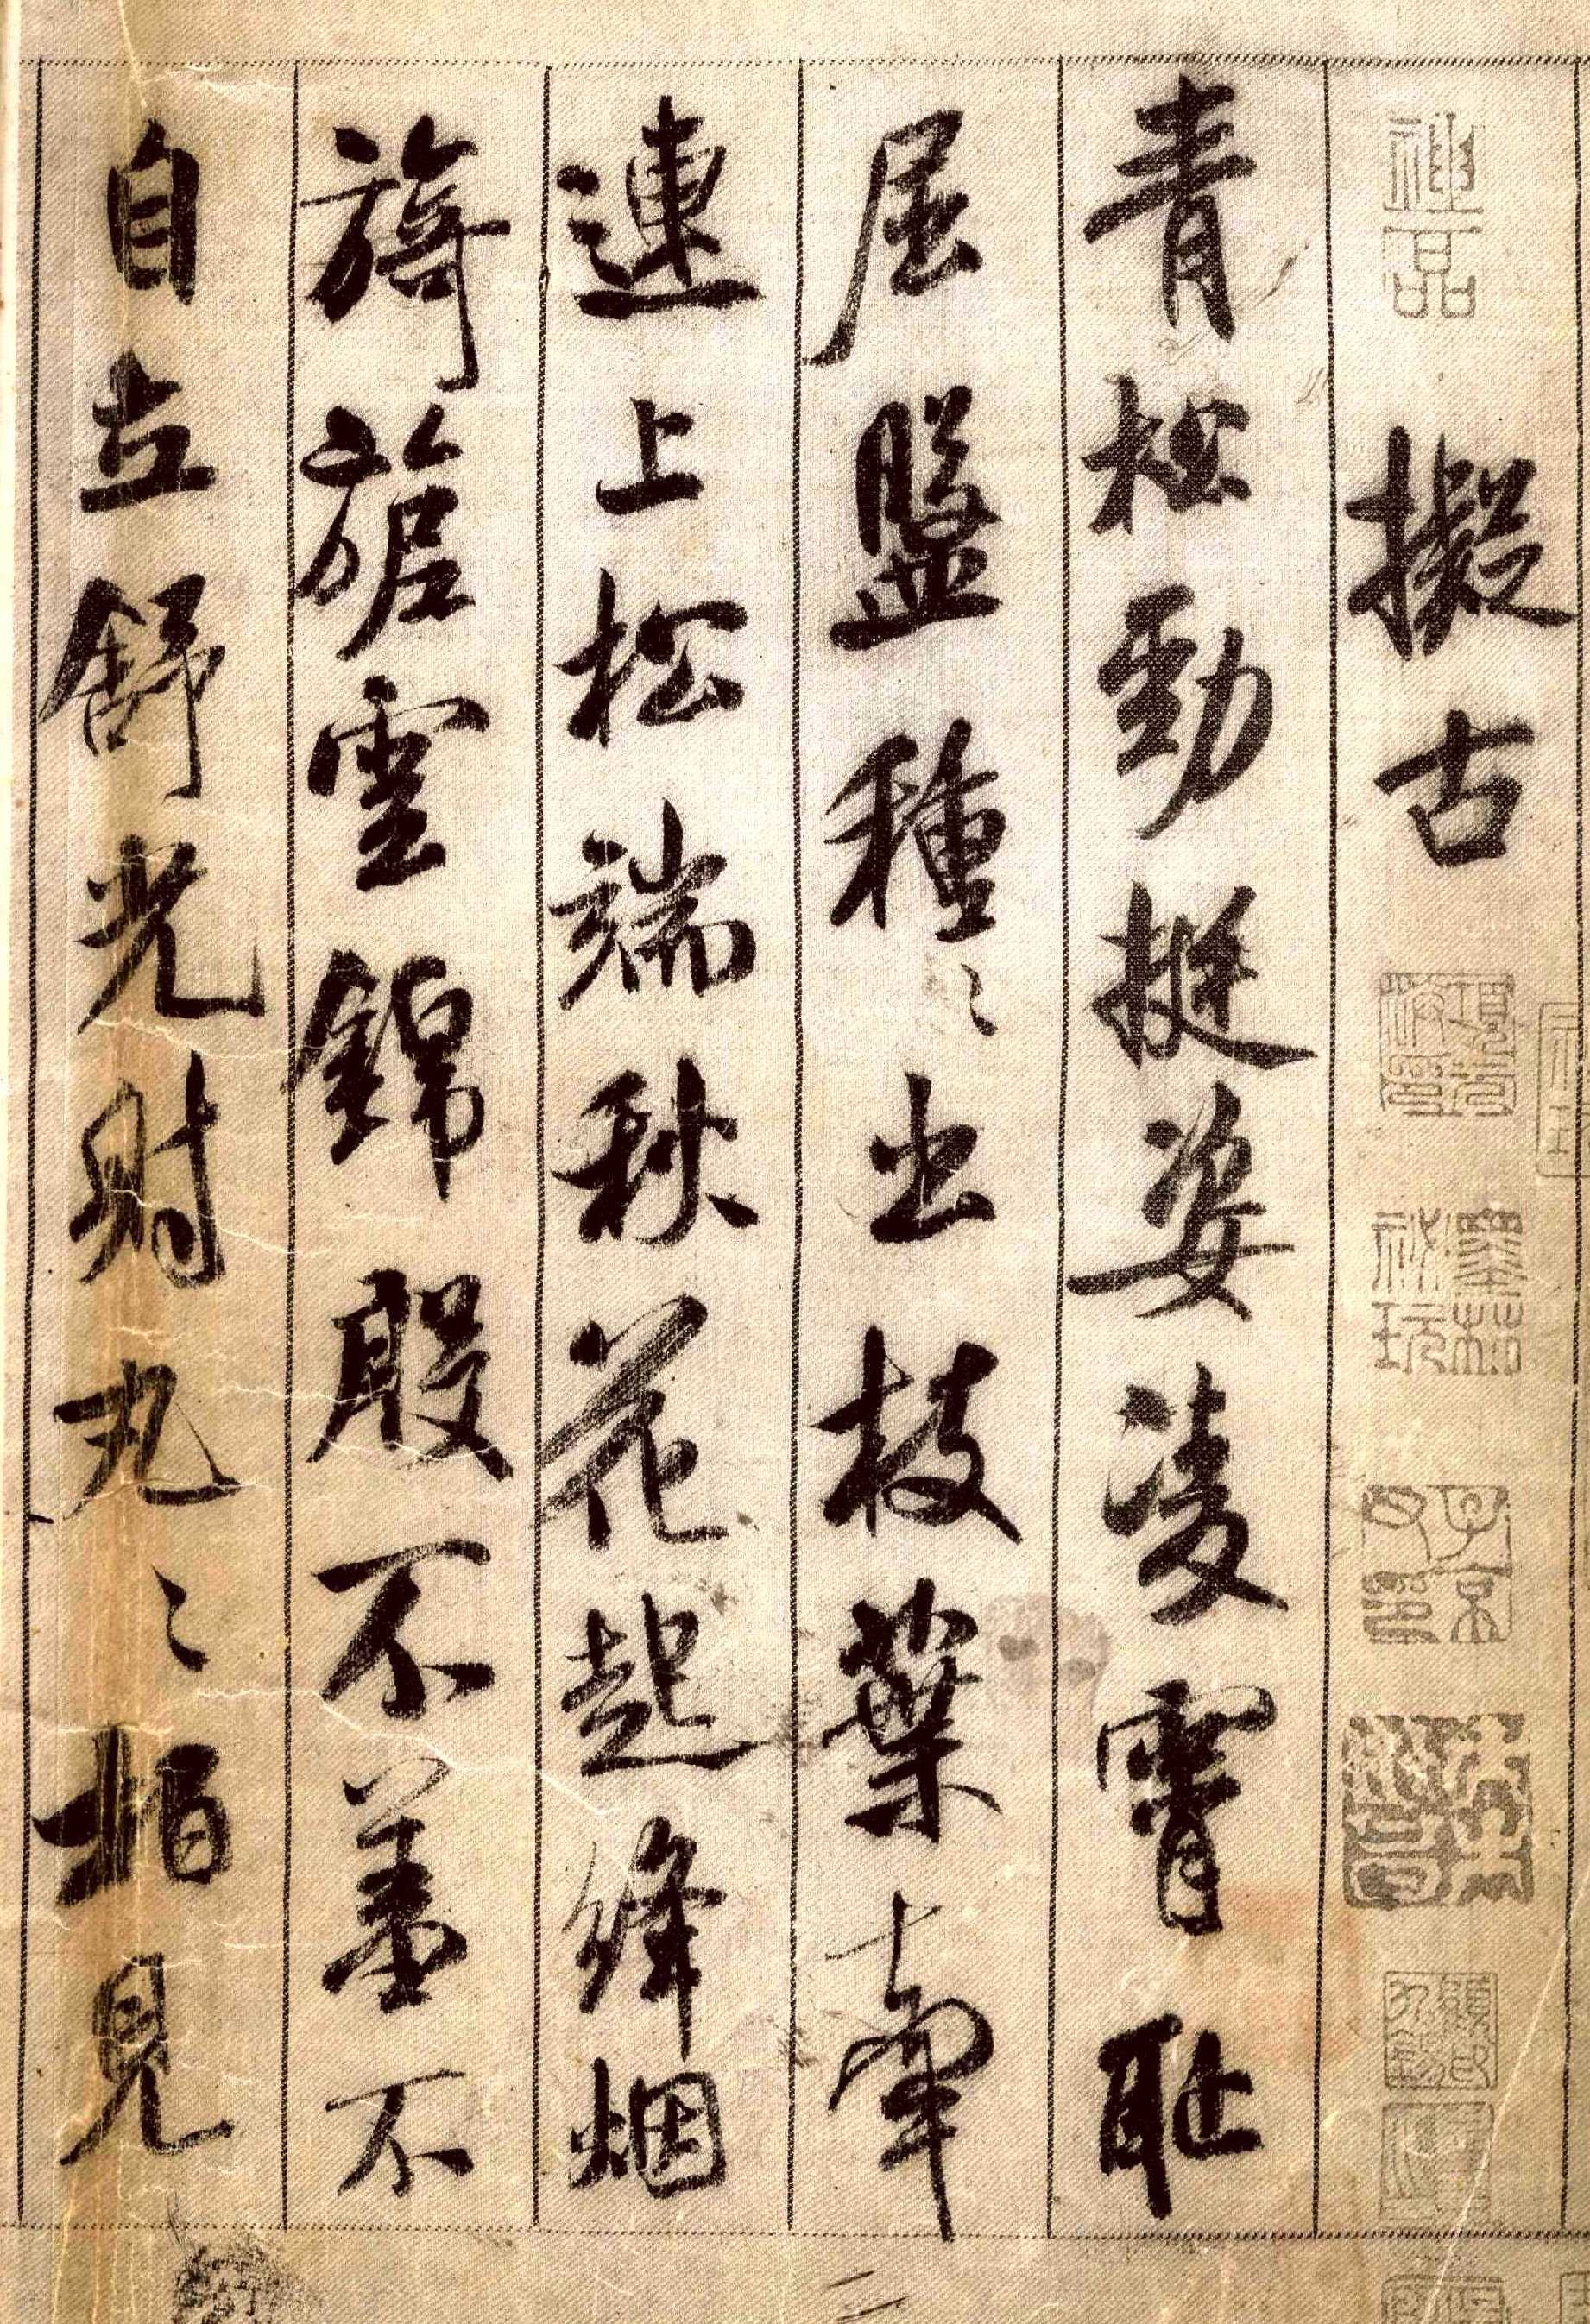 擬古
青松勁挺姿凌霄耻
屈盤種〻出枝葉牽
連上松端秋花起絳烟
旖旎雲錦殷不羞不
自立舒光射丸〻柏見
神品